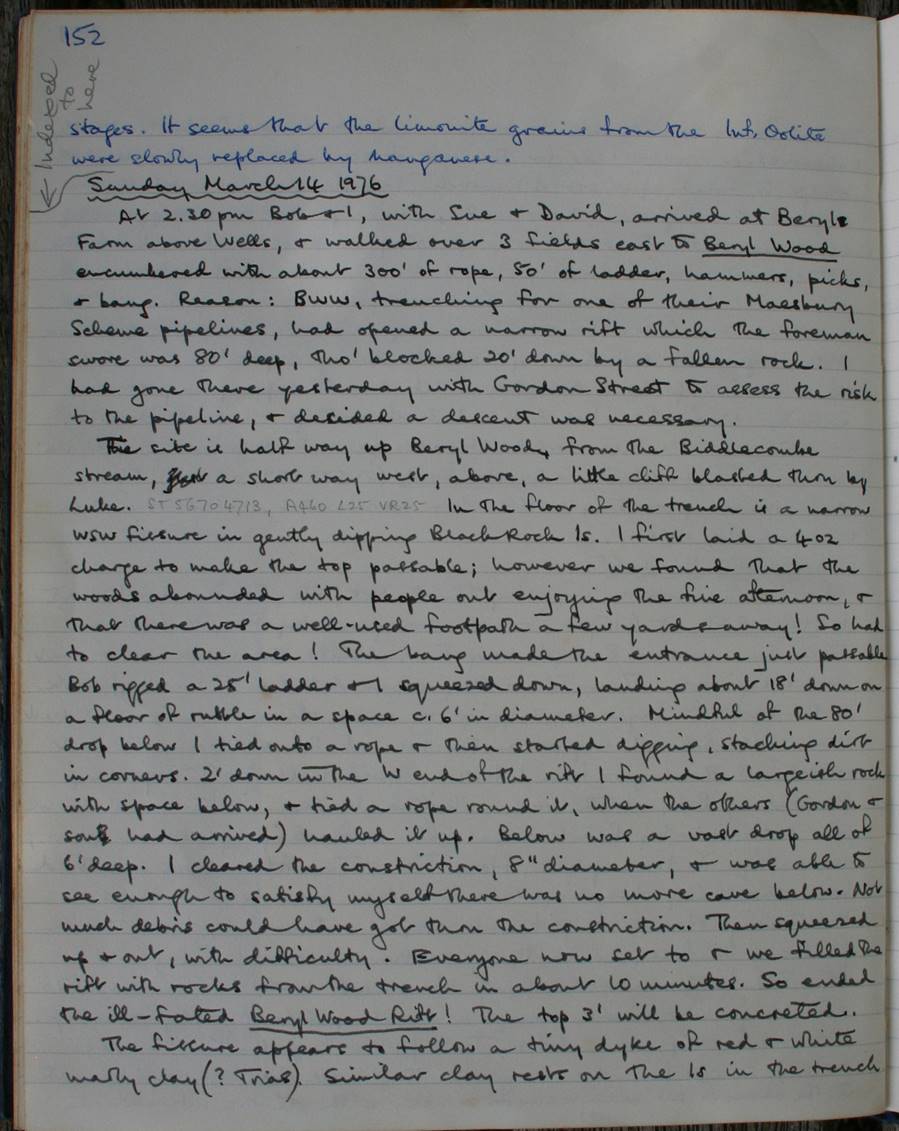 152
Indexed to here
stages. It seems that the limonite grains from the Inf. Oolite
were slowly replaced by manganese.
Sunday March 14 1976
At 2.30 pm Bob & I, with Sue & David, arrived at Beryl
Farm above Wells, & walked over 3 fields east to Beryl Wood
encumbered with about 300' of rope, 50' of ladder, hammers, picks,
& bang. Reason: BWW, trenching for one of their Maesbury
Scheme pipelines, had opened a narrow rift which the foreman
swore was 80' deep, tho' blocked 20' down by a fallen rock. I
had gone there yesterday with Gordon Street to assess the risk
to the pipeline, & desided a descent was necessary.
The site is half way up Beryl Wood, from the Biddlecombe
stream, just a short way west, above, a little cliff blasted thru by
Luke. ST 5670 4713, A460 L25 VR25 In the floor of the trench is a narrow
WSW fissure in gently dipping Black Rock ls. I first laid a 4oz
charge to make the top passable; however we found that the
woods abounded with people out enjoying the fine afternoon, &
that there was a well-used footpath a few yards away! So had
to clear the area! The bang made the entrance just passable
Bob rigged a 25' ladder & I squeezed down, landing about 18' down on
a floor of rubble in a space c. 6' in diameter. Mindful of the 80'
drop below I tied onto a rope & then started digging, stacking dirt
in corners. 2' down in the W end of the rift I found a largeish rock
with space below, & tied a rope round it, when the others (Gordon &
sons had arrived) hauled it up. Below was a vast drop all of
6' deep. I cleared the constriction, 8" diameter, & was able to
see enough to satisfy myself there was no more cave below. Not
much debris could have got thru the constriction. Then squeezed
up & out, with difficulty. Everyone now set to & we filled the
rift with rocks from the trench in about 10 minutes. So ended
the ill-fated Beryl Wood Rift! The top 3' will be concreted.
The fissure appears to follow a tiny dyke of red & white
marly clay (? Trias). Similar clay rests on the ls in the trench